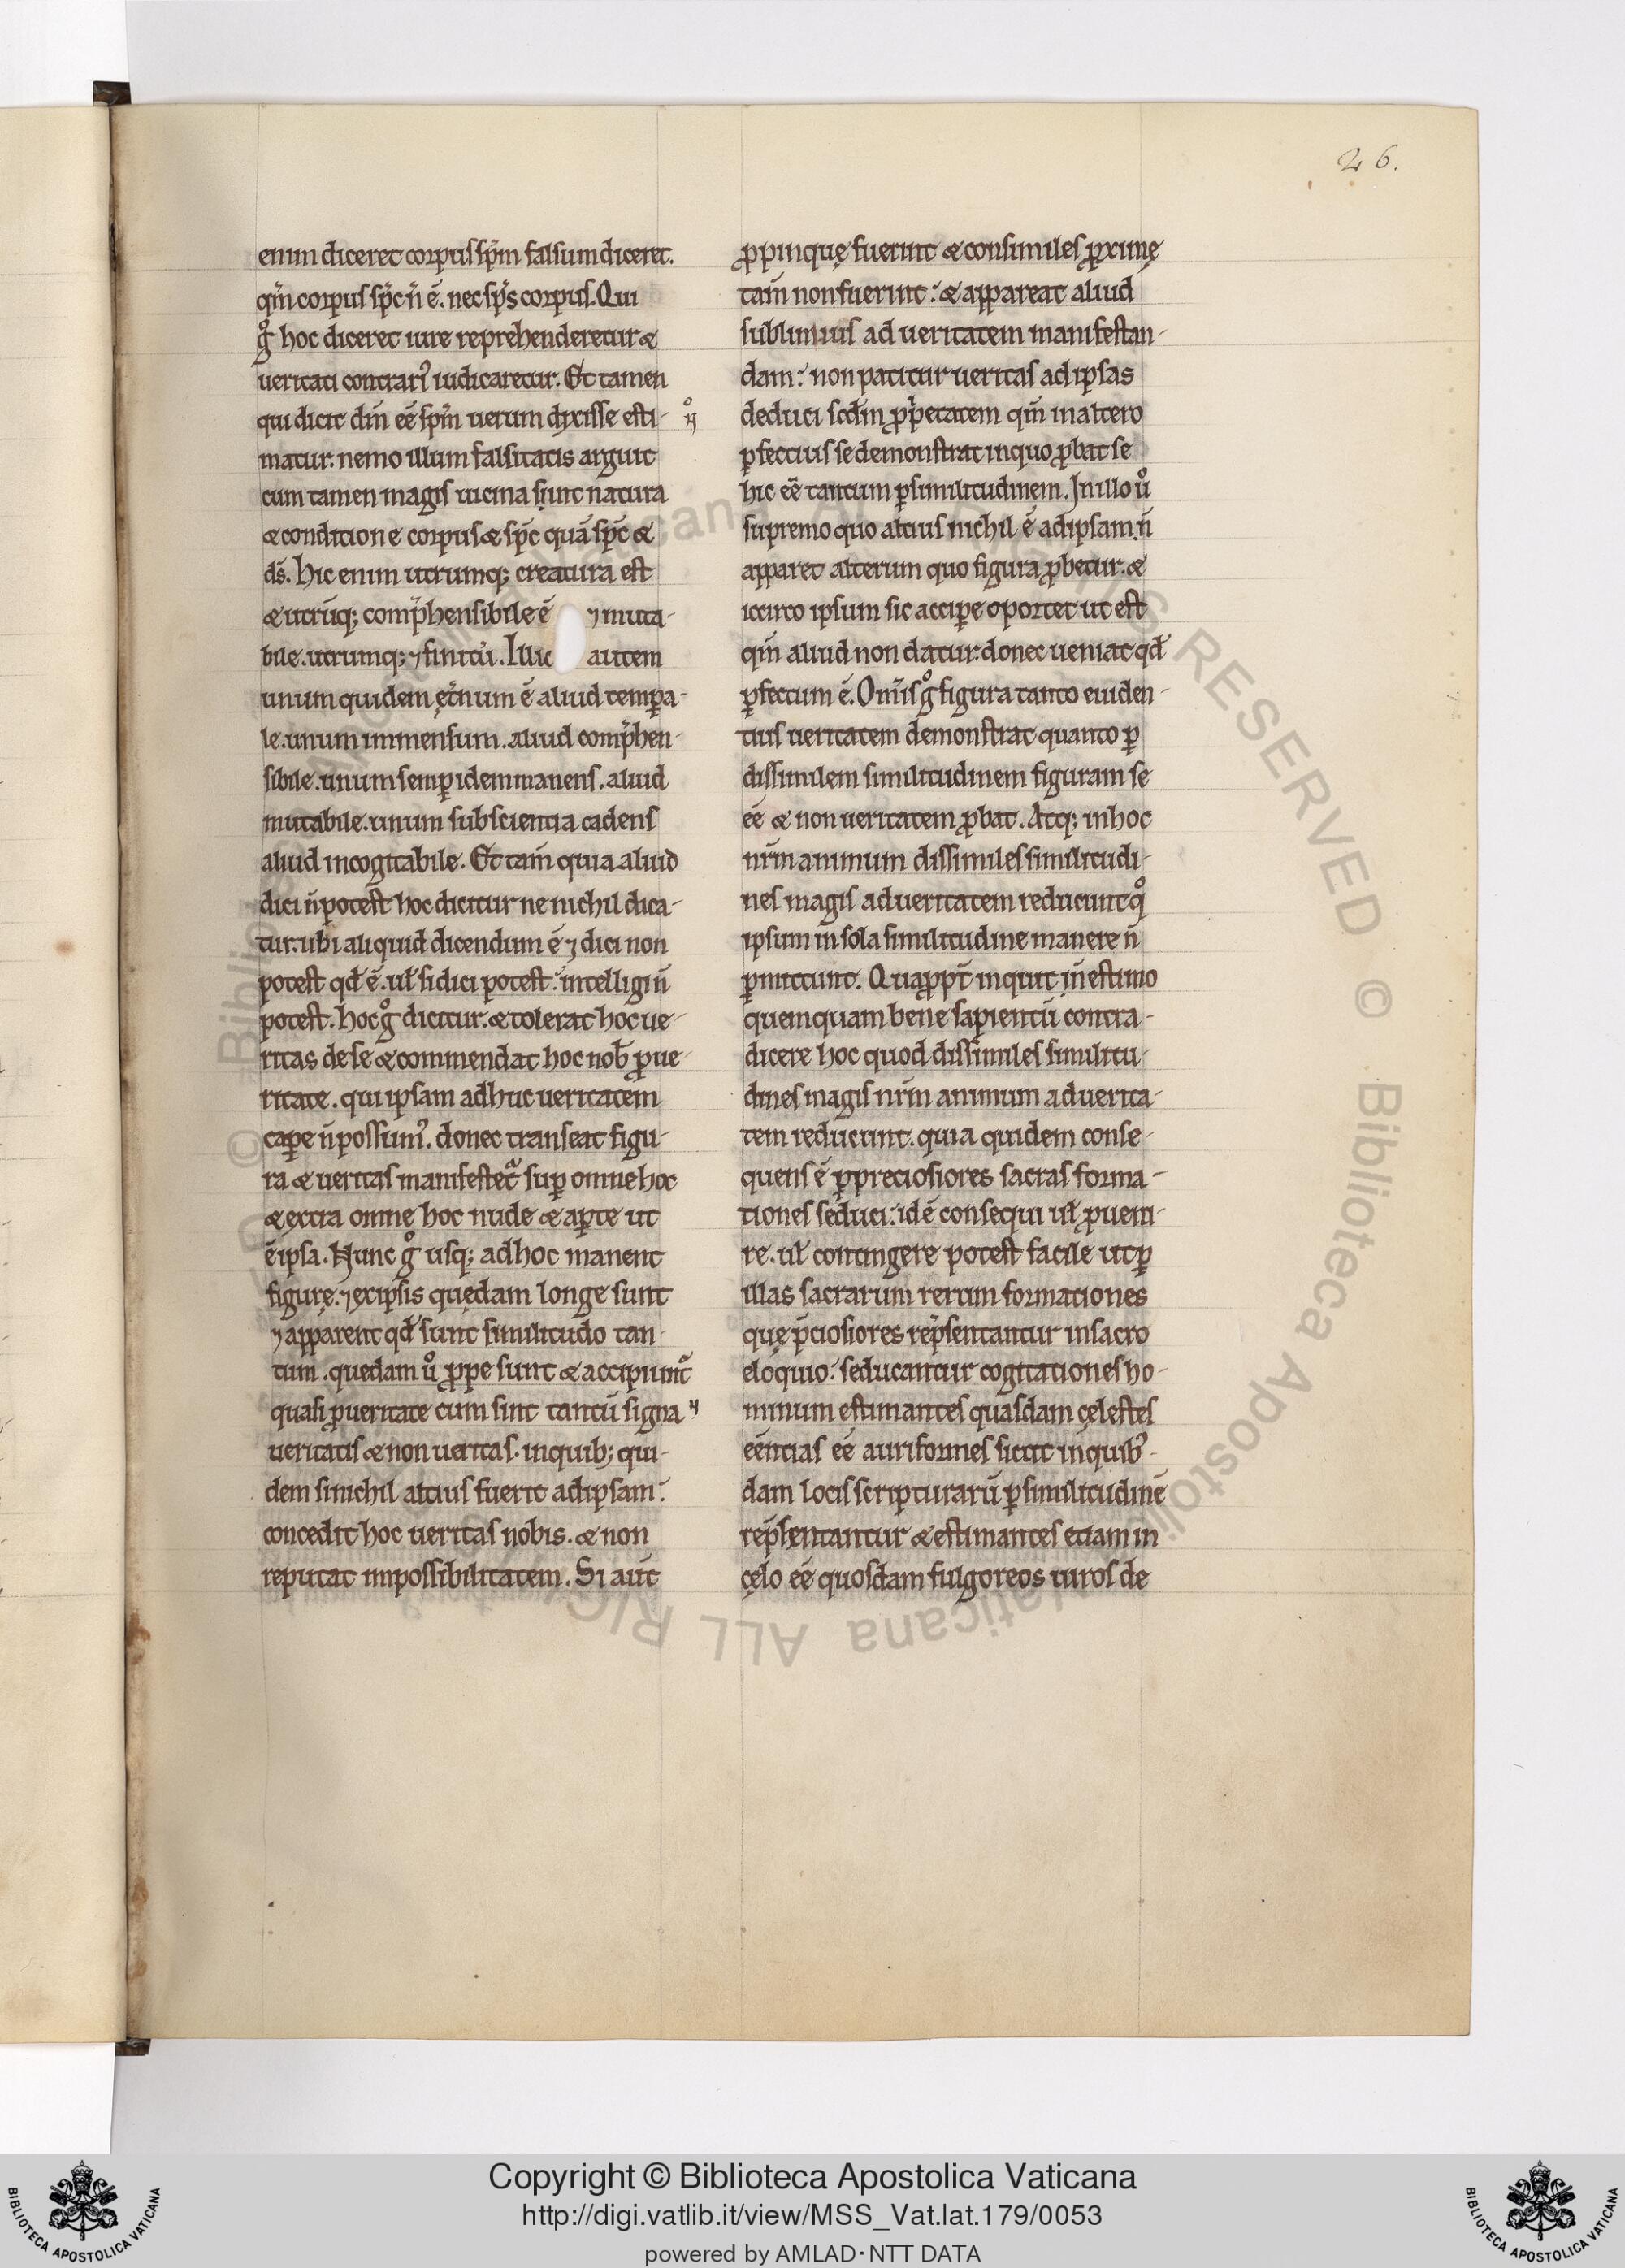 26.
enim diceret corpus sp̄m falsum diceret.
qm̄ corpus sp̄c n̄ ē. nec sp̄s corpus. Qui
gͦ hoc diceret iure reprehenderetur &
ueritati contrari᾿ iudicaretur. Et tamen
qui dicit dm̄ eē sp̄m uerum dixisse esti-
matur. nemo illum falsitatis arguit
cum tamen magis uicina sint natura
& conditione corpus & sp̄c quā sp̄c &
ds̄. Hic enim utrumq; creatura est
& utrūq; comp̄hensibile ē ⁊ muta-
bile. utrumq; ⁊ finitū. Illic autem
unum quidem ęt̄num ē aliud tempa-
le. unum immensum. aliud comp̄hen-
sibile. unum semꝑ idem manens. aliud
mutabile. unum sub scientia cadens
aliud incogitabile. Et tam̄ quia aliud
dici n̄ potest hoc dicitur ne nichil dica-
tur. ubi aliquid dicendum ē ⁊ dici non
potest qđ ē. uł si dici potest: intelligi n̄
potest. hoc gͦ dicitur. & tolerat hoc ue-
ritas de se & commendat hoc nob̄ ꝓ ue-
ritate. qui ipsam adhuc ueritatem
caꝑe n̄ possum᾿. donec transeat figu-
ra & ueritas manifestet᾿ suꝑ omne hoc
& extra omne hoc nude & aꝑte ut
ē ipsa. Nunc gͦ usq; ad hoc manent
figurę. ⁊ ex ipsis quędam longe sunt
⁊ apparent qđ sunt similitudo tan-
tum. quedam uͦ ꝓpe sunt & accipiunt᾿
quasi ꝓ ueritate cum sint tantū signa
ueritatis & non ueritas. in quib; qui-
dem si nichil altius fuerit ad ipsam:
concedit hoc ueritas nobis. & non
reputat impossibilitatem. Si aūt
ꝓpinquę fuerint & consimiles ꝓximę
tam̄ non fuerint: & appareat aliud
sublimius ad ueritatem manifestan-
dam: non patitur ueritas ad ipsas
deduci scdm̄ ꝓp̄etatem qm̄ in altero
ꝑfectius se demonstrat in quo ꝓbat se
hic eē tantum ꝑ similitudinem. In illo uͦ
supremo quo altius nichil ē ad ipsam. n̄
apparet alterum quo figura ꝓbetur. &
iccirco ipsum sic acciꝑe oportet ut est
qm̄ aliud non datur. donec ueniat qđ
ꝑfectum ē. Om̄is gͦ figura tanto euiden-
tius ueritatem demonstrat quanto ꝑ
dissimilem similitudinem figuram se
eē & non ueritatem ꝓbat. Atq; in hoc
nr̄m animum dissimiles similitudi-
nes magis ad ueritatem reducunt qͦ
ipsum in sola similitudine manere n̄
ꝑmittunt. Quaꝓpt̄ inquit n̄ estimo
quemquam bene sapientū contra-
dicere hoc quod dissimiles similitu-
dines magis nr̄m animum ad uerita-
tem reducunt. quia quidem conse-
quens ē ꝑ preciosiores sacras forma-
tiones seduci: id ē consequi uł ꝓueni-
re. uł contingere potest facile ut ꝑ
illas sacrarum rerum formationes
quę p̄ciosiores rep̄sentantur in sacro
eloquio: seducantur cogitationes ho-
minum estimantes quasdam cęlestes
eēntias eē auriformes sicut in quib᾿-
dam locis scripturarū ꝑ similitudinē
rep̄sentantur & estimantes etiam in
cęlo eē quosdam fulgoreos uiros de
Copyright © Biblioteca Apostolica Vaticana
http://digi.vatlib.it/view/MSS_Vat.lat.179/0053
powered by AMLAD·NTT DATA
BIBLIOTECA APOSTOLICA VATICANA
BIBLIOTECA APOSTOLICA VATICANA